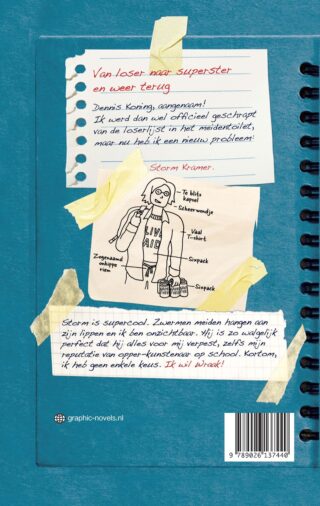 Van loser naar superster
en weer terug
Dennis Koning, aangenaam!
Ik werd dan wel officieel geschrapt
van de loserlijst in het meidentoilet,
maar nu heb ik een nieuw probleem:
Storm Kramer.
Te blits
kapsel
Scheerwondje
Vaal
T-shirt
LIVE
AID
Zogenaamd
onhippe
riem
Sixpack
Sixpack
Storm is supercool. Zwermen meiden hangen aan
zijn lippen en ik ben onzichtbaar. Hij is zo walgelijk
perfect dat hij alles voor mij verpest, zelfs mijn
reputatie van opper-kunstenaar op school. Kortom,
ik heb geen enkele keus. Ik wil wraak!
graphic-novels.nl
9 789026 137440